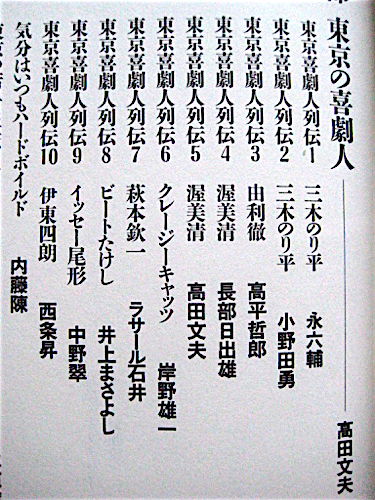 東京の喜劇人 高田文夫
東京喜劇人列伝1 三木のり平 永六輔
東京喜劇人列伝2 三木のり平 小野田勇
東京喜劇人列伝3 由利徹 高平哲郎
東京喜劇人列伝4 渥美清 長部日出雄
東京喜劇人列伝5 渥美清 高田文夫
東京喜劇人列伝6 クレージーキャッツ 岸野雄一
東京喜劇人列伝7 萩本欽一 ラサール石井
東京喜劇人列伝8 ビートたけし 井上まさよし
東京喜劇人列伝9 イッセー尾形 中野翠
東京喜劇人列伝10 伊東四朗 西条昇
気分はいつもハードボイルド 内藤陳